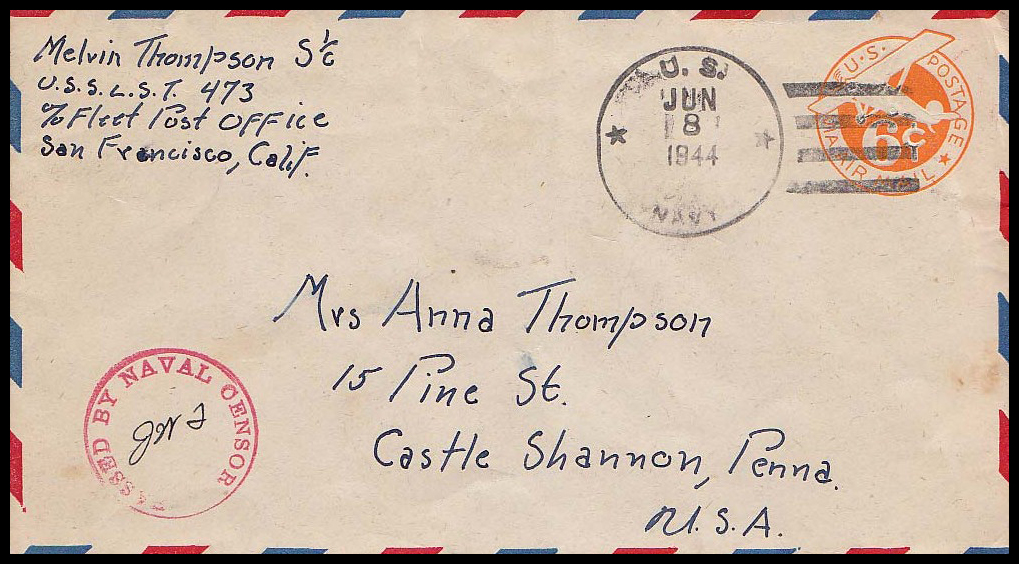 Melvin Thompson S 1/c
U.S.S. L.S.T. 473
c/o Fleet Post Office
San Francisco, Calif.
U. S.
JUN
8
1944
NAVY
U.S. POSTAGE
6¢
VIA AIR MAIL
Mrs Anna Thompson
15 Pine St.
Castle Shannon, Penna.
U.S.A.
PASSED BY NAVAL CENSOR